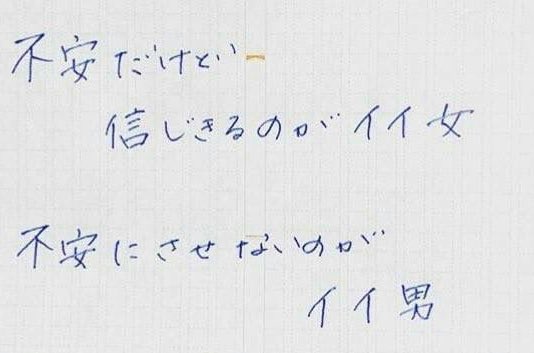 不安だけどぃー
信じきるのがイイ女
不安にさせないのが
イイ男